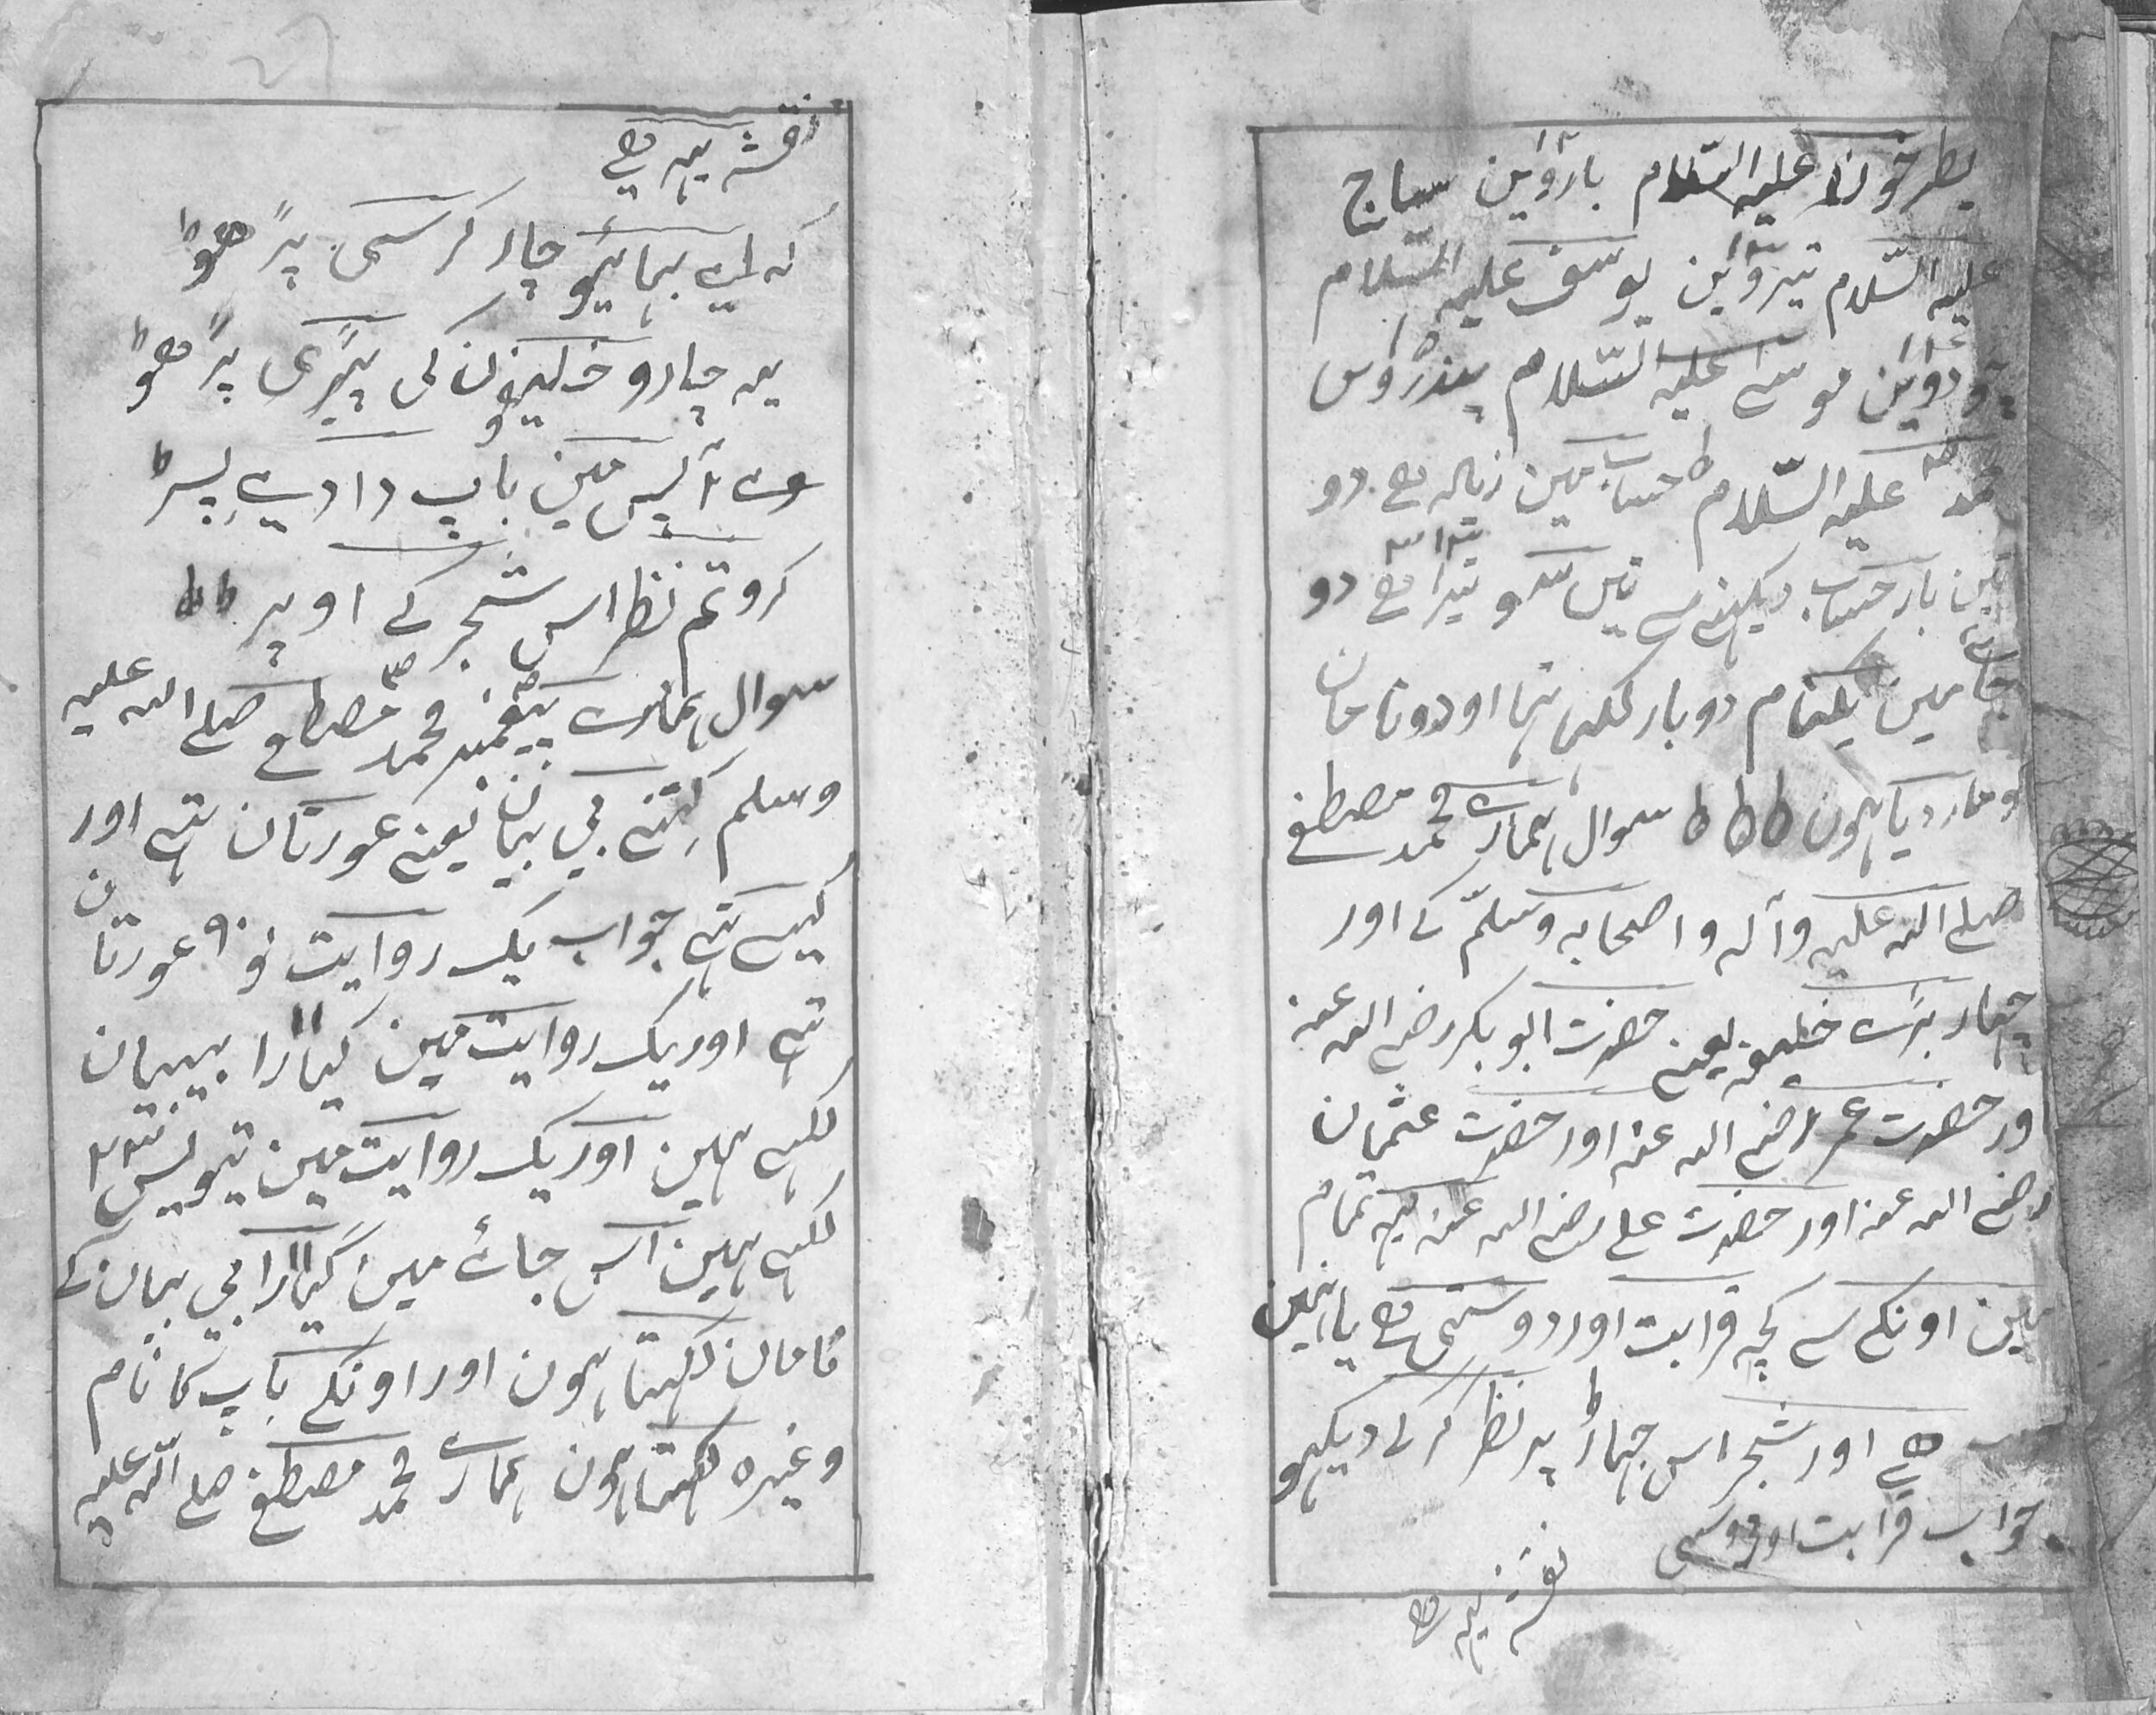 بطرخون علیہ السّلام بارؤین سیاح
علیہ السّلام تیرؤین یوسف علیہ السّلام
چودوین موسے علیہ السّلام پندرؤس
محمد علیہ السّلام ط حساب مین زیالہ ھے دو
تین بار حساب دیکہنے سے تین سو تیرا ھے دو
جائے مین یکنام دو بار لکہا تہا اور دو نامان
کو مار دیا ہون ططط سوال ہمارے محمد مصطفے
صلے اللہ علیہ وآلہ و اصحابہ وسلّم کے اور
چہار بڑے خلیفہ یعنے حضرت ابو بکر رضے اللہ عنہ
اور حضرت عمر رضے اللہ عنہ اور حضرت عثمان
رضے اللہ عنہ اور حضرت علے رضے اللہ عنہ یہہ تمام
مین اونکے سے کچہ قرابت اور دوستی ھے یا نہین
ھے اور شجر اس جہاڑ پر نظر کر کے دیکہو
جواب قرابت اور دوستی
نقشہ یہہ ھے
نقشہ یہہ ھے
کہ اے بہائیو چار کرسی پڑھو ط
یہ چارو خلیفون کی پیڑی پڑھو ط
وے آپس مین باپ دادے پسر ط
کرو تم نظر اس شجر کے اوپر طط
سوال ہمارے پیغمبر محمد مصطفے صلے اللہ علیہ
وسلم کتنے بی بیان یعنے عورتان تہے اور
کیسے تہے جواب یک روایت نو ۹ عورتان
تہے اور یک روایت مین گیارا ۱۱ بیبیان
لکہے ہین اور یک روایت مین تیویس ۲۳
لکہے ہین اس جائے مین گیارا ۱۱ بی بیان کے
نامان لکہتا ہون اور اونکے باپ کا نام
وغیرہ لکہتا ہون ہمارے محمد مصطفے صلے اللہ علیہ